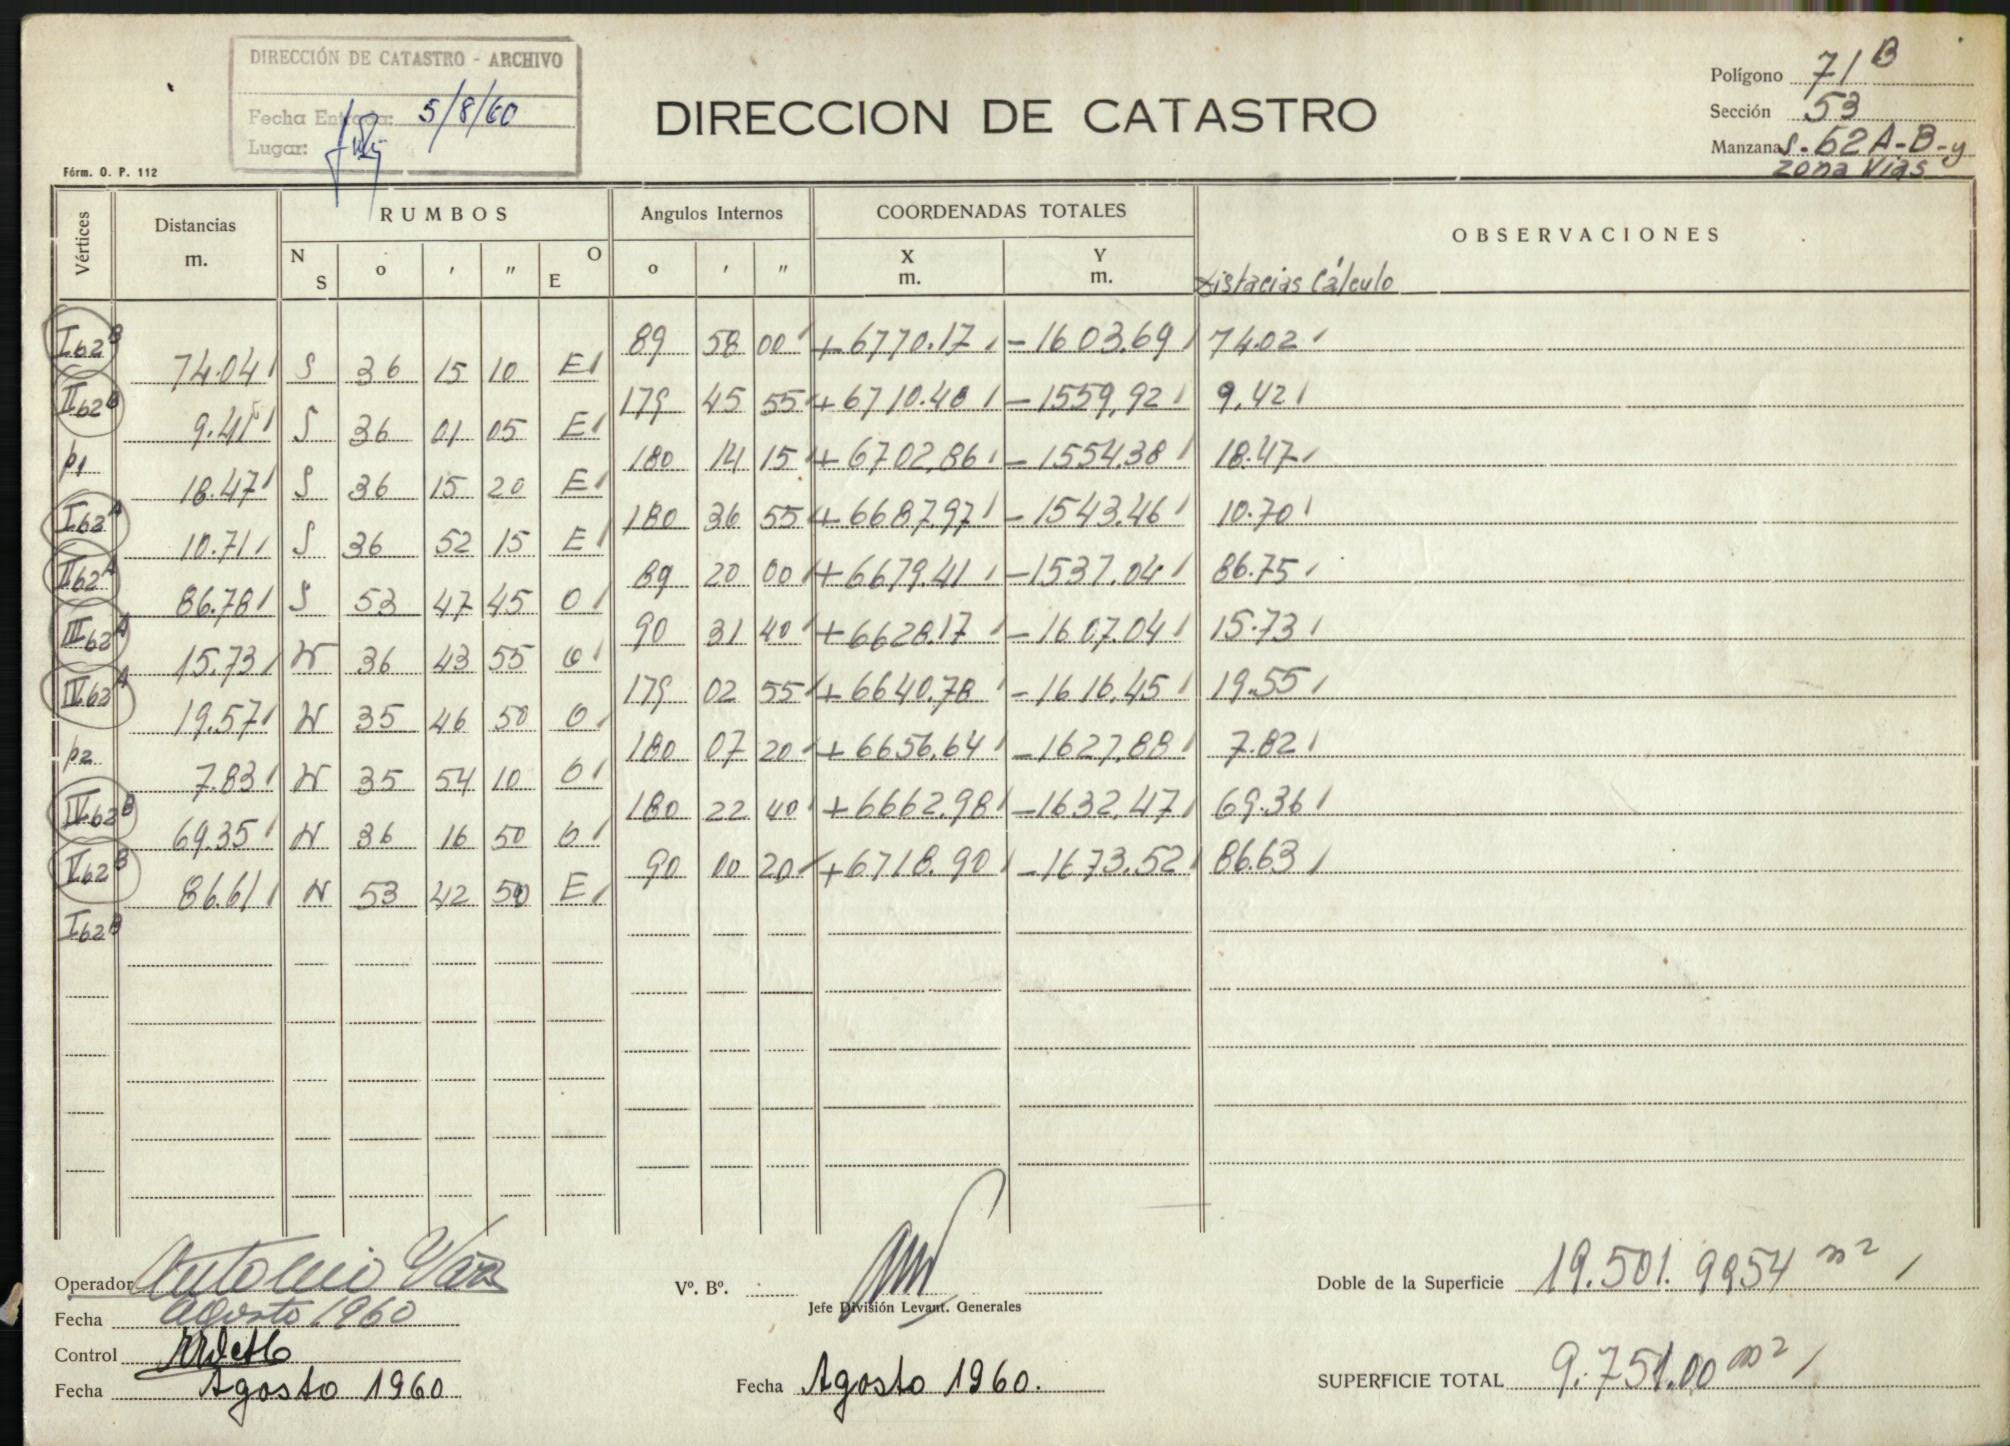 DIRECCIÓN DE CATASTRO - ARCHIVO
Fecha Entrada: 5/8/60
Lugar:
Fórm. O. P. 112
DIRECCION DE CATASTRO
Polígono 71 B
Sección 53
Manzana S. 62 A-B-y
zona Vías
Vértices Distancias m. RUMBOS Angulos Internos COORDENADAS TOTALES OBSERVACIONES
N S o ' " E O o ' " X m. Y m. Distacias Cálculo
I 62 B 89 58 00 +6770.17 -1603.69 74.02
74.04 S 36 15 10 E
II 62 B 179 45 55 +6710.40 -1559,92 9,42
9.41 S 36 01 05 E
p1 180 14 15 +6702,86 -1554.38 18.47
18.47 S 36 15 20 E
I 62 A 180 36 55 +6687,97 -1543.46 10.70
10.71 S 36 52 15 E
II 62 A 89 20 00 +6679.41 -1537.04 86.75
86.78 S 53 47 45 O
III 62 A 90 31 40 +6628.17 -1607.04 15.73
15.73 N 36 43 55 O
IV 62 A 179 02 55 +6640.78 -1616.45 19.55
19.57 N 35 46 50 O
p2 180 07 20 +6656.64 -1627,88 7.82
7.83 N 35 54 10 O
IV 62 B 180 22 40 +6662.98 -1632,47 69.36
69.35 N 36 16 50 O
V 62 B 90 00 20 +6718.90 -1673.52 86.63
86.61 N 53 42 50 E
I 62 B
Operador Antonio
Fecha Agosto 1960
Control
Fecha Agosto 1960
Vº. Bº.
Jefe División Levant. Generales
Fecha Agosto 1960.
Doble de la Superficie 19.501.9954 m2
SUPERFICIE TOTAL 9.751.00 m2